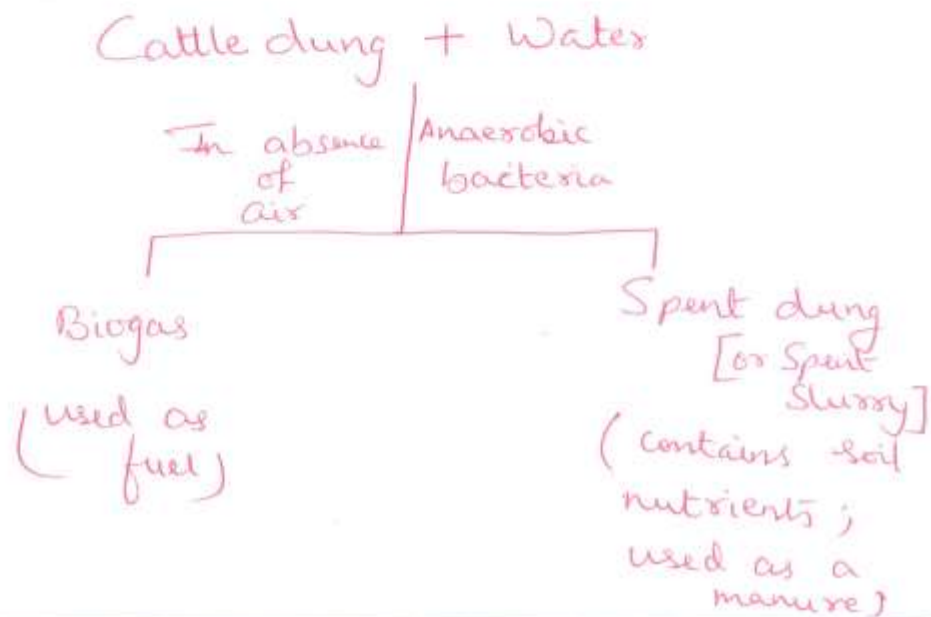 Cattle dung + Water
In absence
of
air
Anaerobic
bacteria
Biogas
(used as
fuel)
Spent dung
[or Spent
Slurry]
(contains soil
nutrients;
used as a
manure)